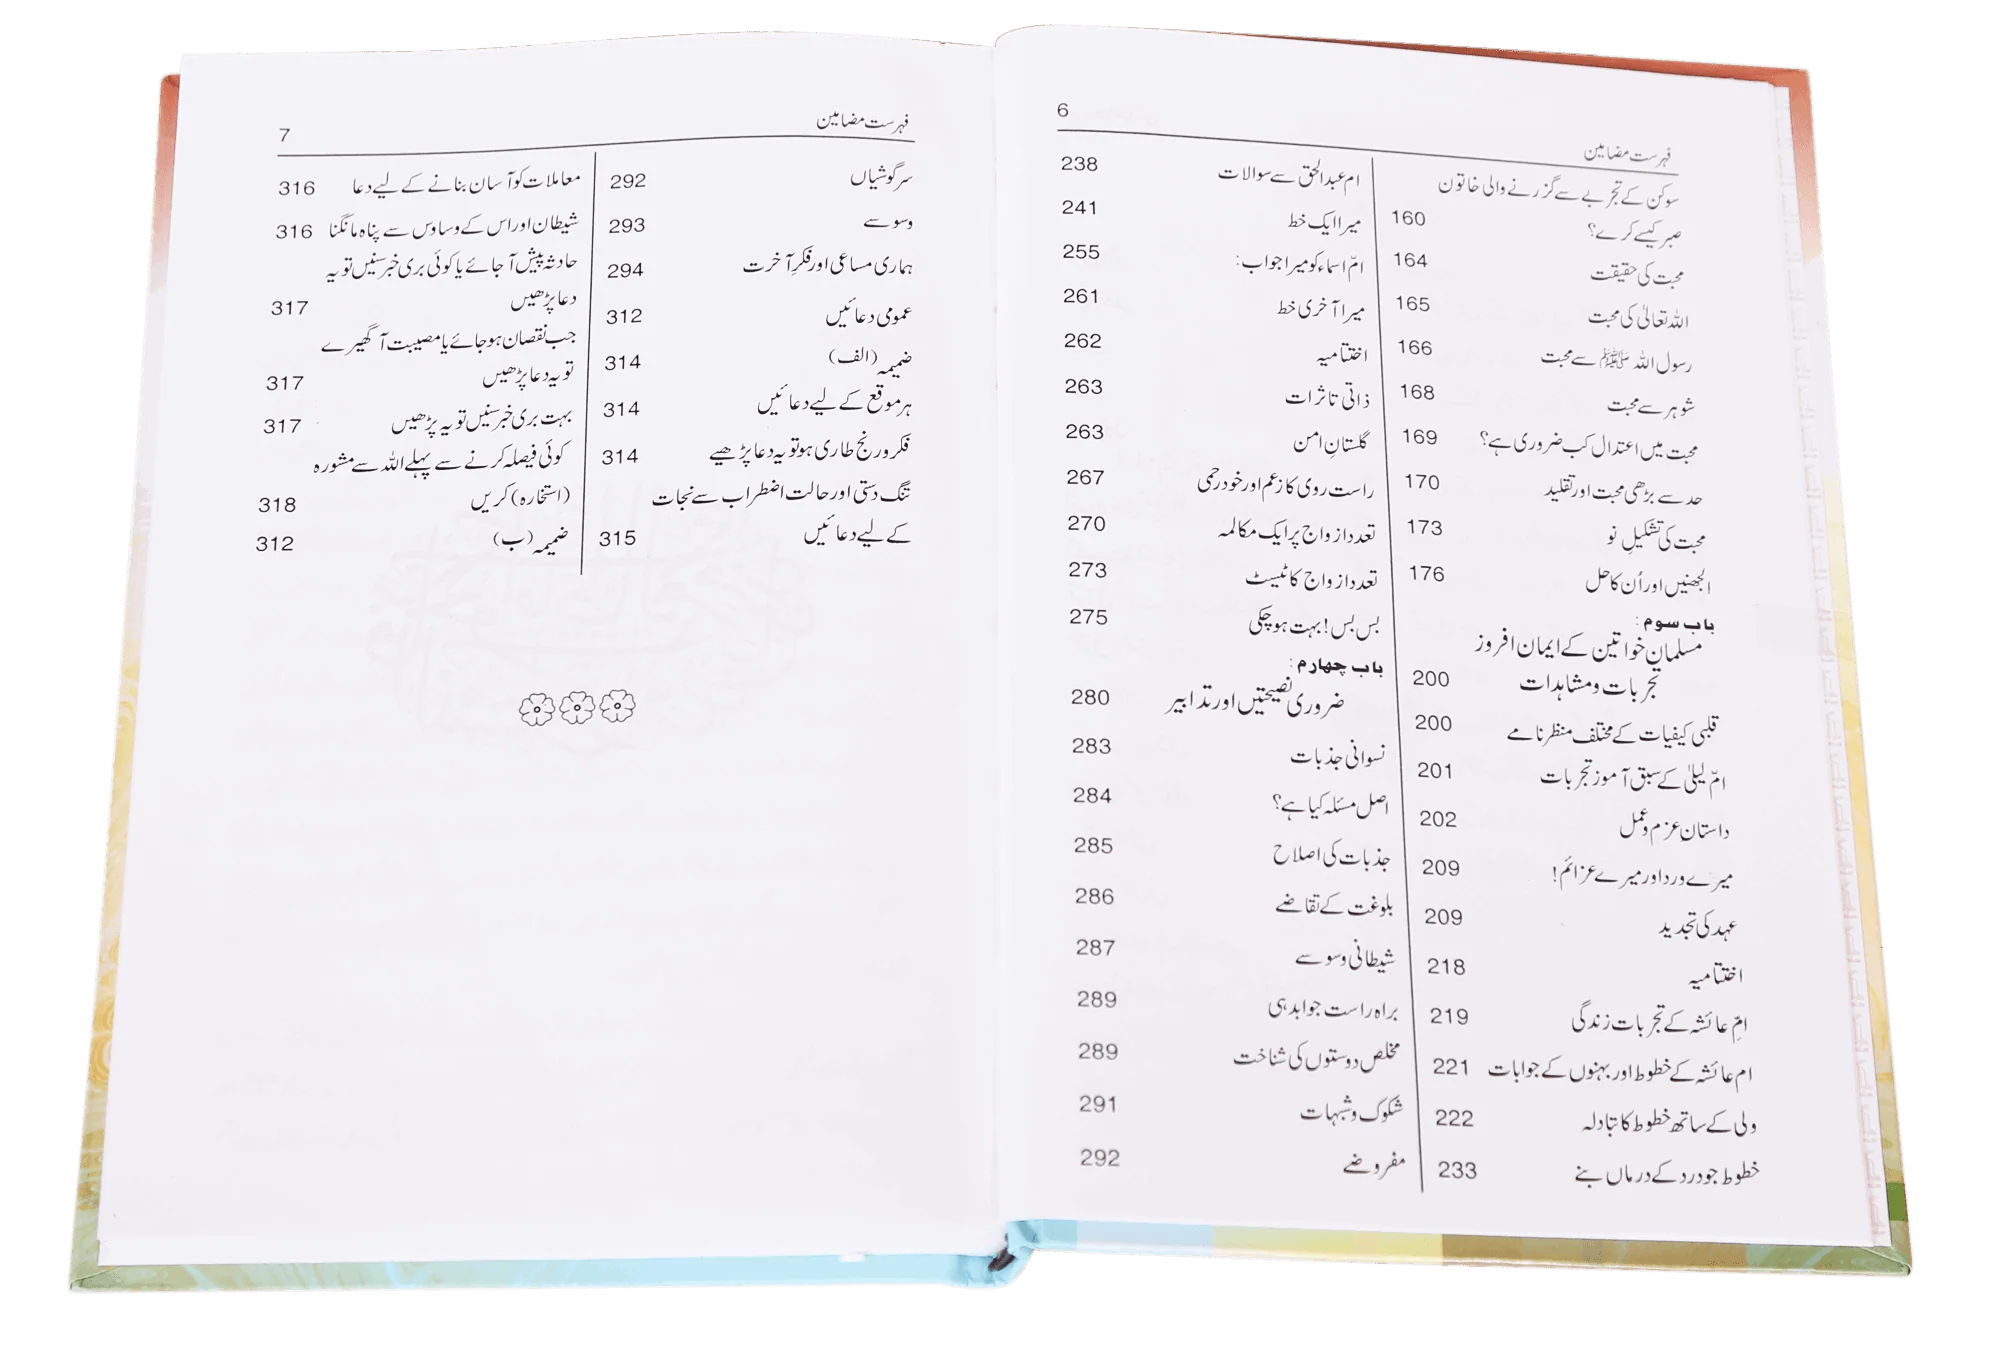 فہرست مضامین 6
سوکن کے تجربے سے گزرنے والی خاتون
صبر کیسے کرے؟ 160
محبت کی حقیقت 164
اللہ تعالیٰ کی محبت 165
رسول اللہ ﷺ سے محبت 166
شوہر سے محبت 168
محبت میں اعتدال کب ضروری ہے؟ 169
حد سے بڑھی محبت اور تقلید 170
محبت کی تشکیلِ نو 173
الجھنیں اور اُن کا حل 176
باب سوم:
مسلمان خواتین کے ایمان افروز
تجربات و مشاہدات 200
قلبی کیفیات کے مختلف منظر نامے 200
امّ لیلیٰ کے سبق آموز تجربات 201
داستانِ عزم و عمل 202
میرے ورد اور میرے عزائم! 209
عہد کی تجدید 209
اختتامیہ 218
امِّ عائشہ کے تجربات زندگی 219
ام عائشہ کے خطوط اور بہنوں کے جوابات 221
ولی کے ساتھ خطوط کا تبادلہ 222
خطوط جو درد کے درماں بنے 233
ام عبدالحق سے سوالات 238
میرا ایک خط 241
امّ اسماء کو میرا جواب: 255
میرا آخری خط 261
اختتامیہ 262
ذاتی تاثرات 263
گلستانِ امن 263
راست روی کا زعم اور خود رحمی 267
تعدد ازواج پر ایک مکالمہ 270
تعدد ازواج کا ٹیسٹ 273
بس بس! بہت ہو چکی 275
باب چہارم:
ضروری نصیحتیں اور تدابیر 280
نسوانی جذبات 283
اصل مسئلہ کیا ہے؟ 284
جذبات کی اصلاح 285
بلوغت کے تقاضے 286
شیطانی وسوسے 287
براہ راست جوابدہی 289
مخلص دوستوں کی شناخت 289
شکوک و شبہات 291
مفروضے 292
فہرست مضامین 7
سرگوشیاں 292
وسوسے 293
ہماری مساعی اور فکرِ آخرت 294
عمومی دعائیں 312
ضمیمہ (الف) 314
ہر موقع کے لیے دعائیں 314
فکر و رنج طاری ہو تو یہ دعا پڑھیے 314
تنگ دستی اور حالت اضطراب سے نجات
کے لیے دعائیں 315
معاملات کو آسان بنانے کے لیے دعا 316
شیطان اور اس کے وساوس سے پناہ مانگنا 316
حادثہ پیش آ جائے یا کوئی بری خبر سنیں تو یہ
دعا پڑھیں 317
جب نقصان ہو جائے یا مصیبت آ گھیرے
تو یہ دعا پڑھیں 317
بہت بری خبر سنیں تو یہ پڑھیں 317
کوئی فیصلہ کرنے سے پہلے اللہ سے مشورہ
(استخارہ) کریں 318
ضمیمہ (ب) 312